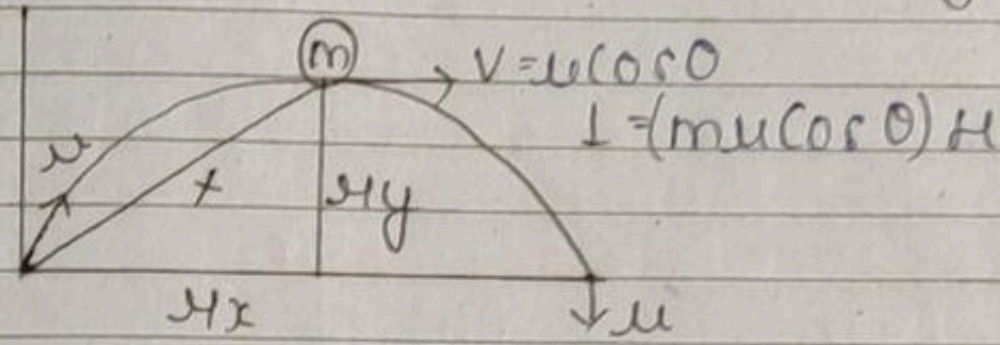 m
V=uCosθ
L=(muCosθ)H
u
r
ry
rx
u